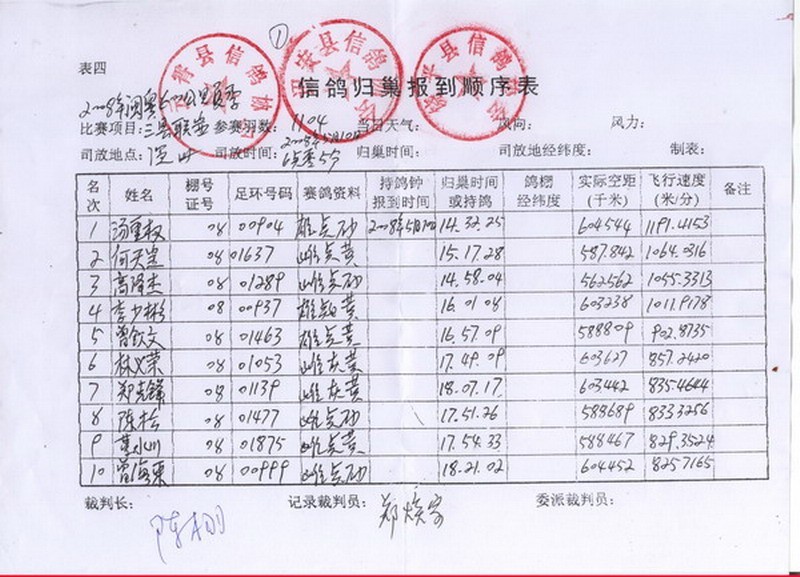 ①
表四
信鸽归巢报到顺序表
比赛项目: 三县联赛 参赛羽数: 1104 当日天气: 风向: 风力:
2008年5月10日
司放地点: 司放时间: 归巢时间: 司放地经纬度: 制表:
名次 姓名 棚号证号 足环号码 赛鸽资料 持鸽钟报到时间 归巢时间或持鸽 鸽棚经纬度 实际空距(千米) 飞行速度(米/分) 备注
1 汤重权 08 00904 雄 砂 2008年5月10日 14.32.25 604544 1191.4153
2 何天 08 01637 雌 黄 15.17.28 587.842 1064.0316
3 高 杰 08 01289 雌 砂 14.58.04 562562 1055.3313
4 李少彬 08 00937 雄 黄 16.01.08 603238 1011.9178
5 曾钦文 08 01463 雄 黄 16.57.09 588809 902.8735
6 林义荣 08 01053 雌灰黄 17.49.09 603627 857.2420
7 郑先锋 08 01139 雄灰黄 18.07.17 603.442 835.4644
8 陈松 08 01477 雌 砂 17.51.26 588689 833.3256
9 小川 08 01875 雌 黄 17.54.33 588467 829.3524
10 曾海东 08 00999 雌 砂 18.21.02 604452 825.7165
裁判长: 记录裁判员: 郑焕 委派裁判员: